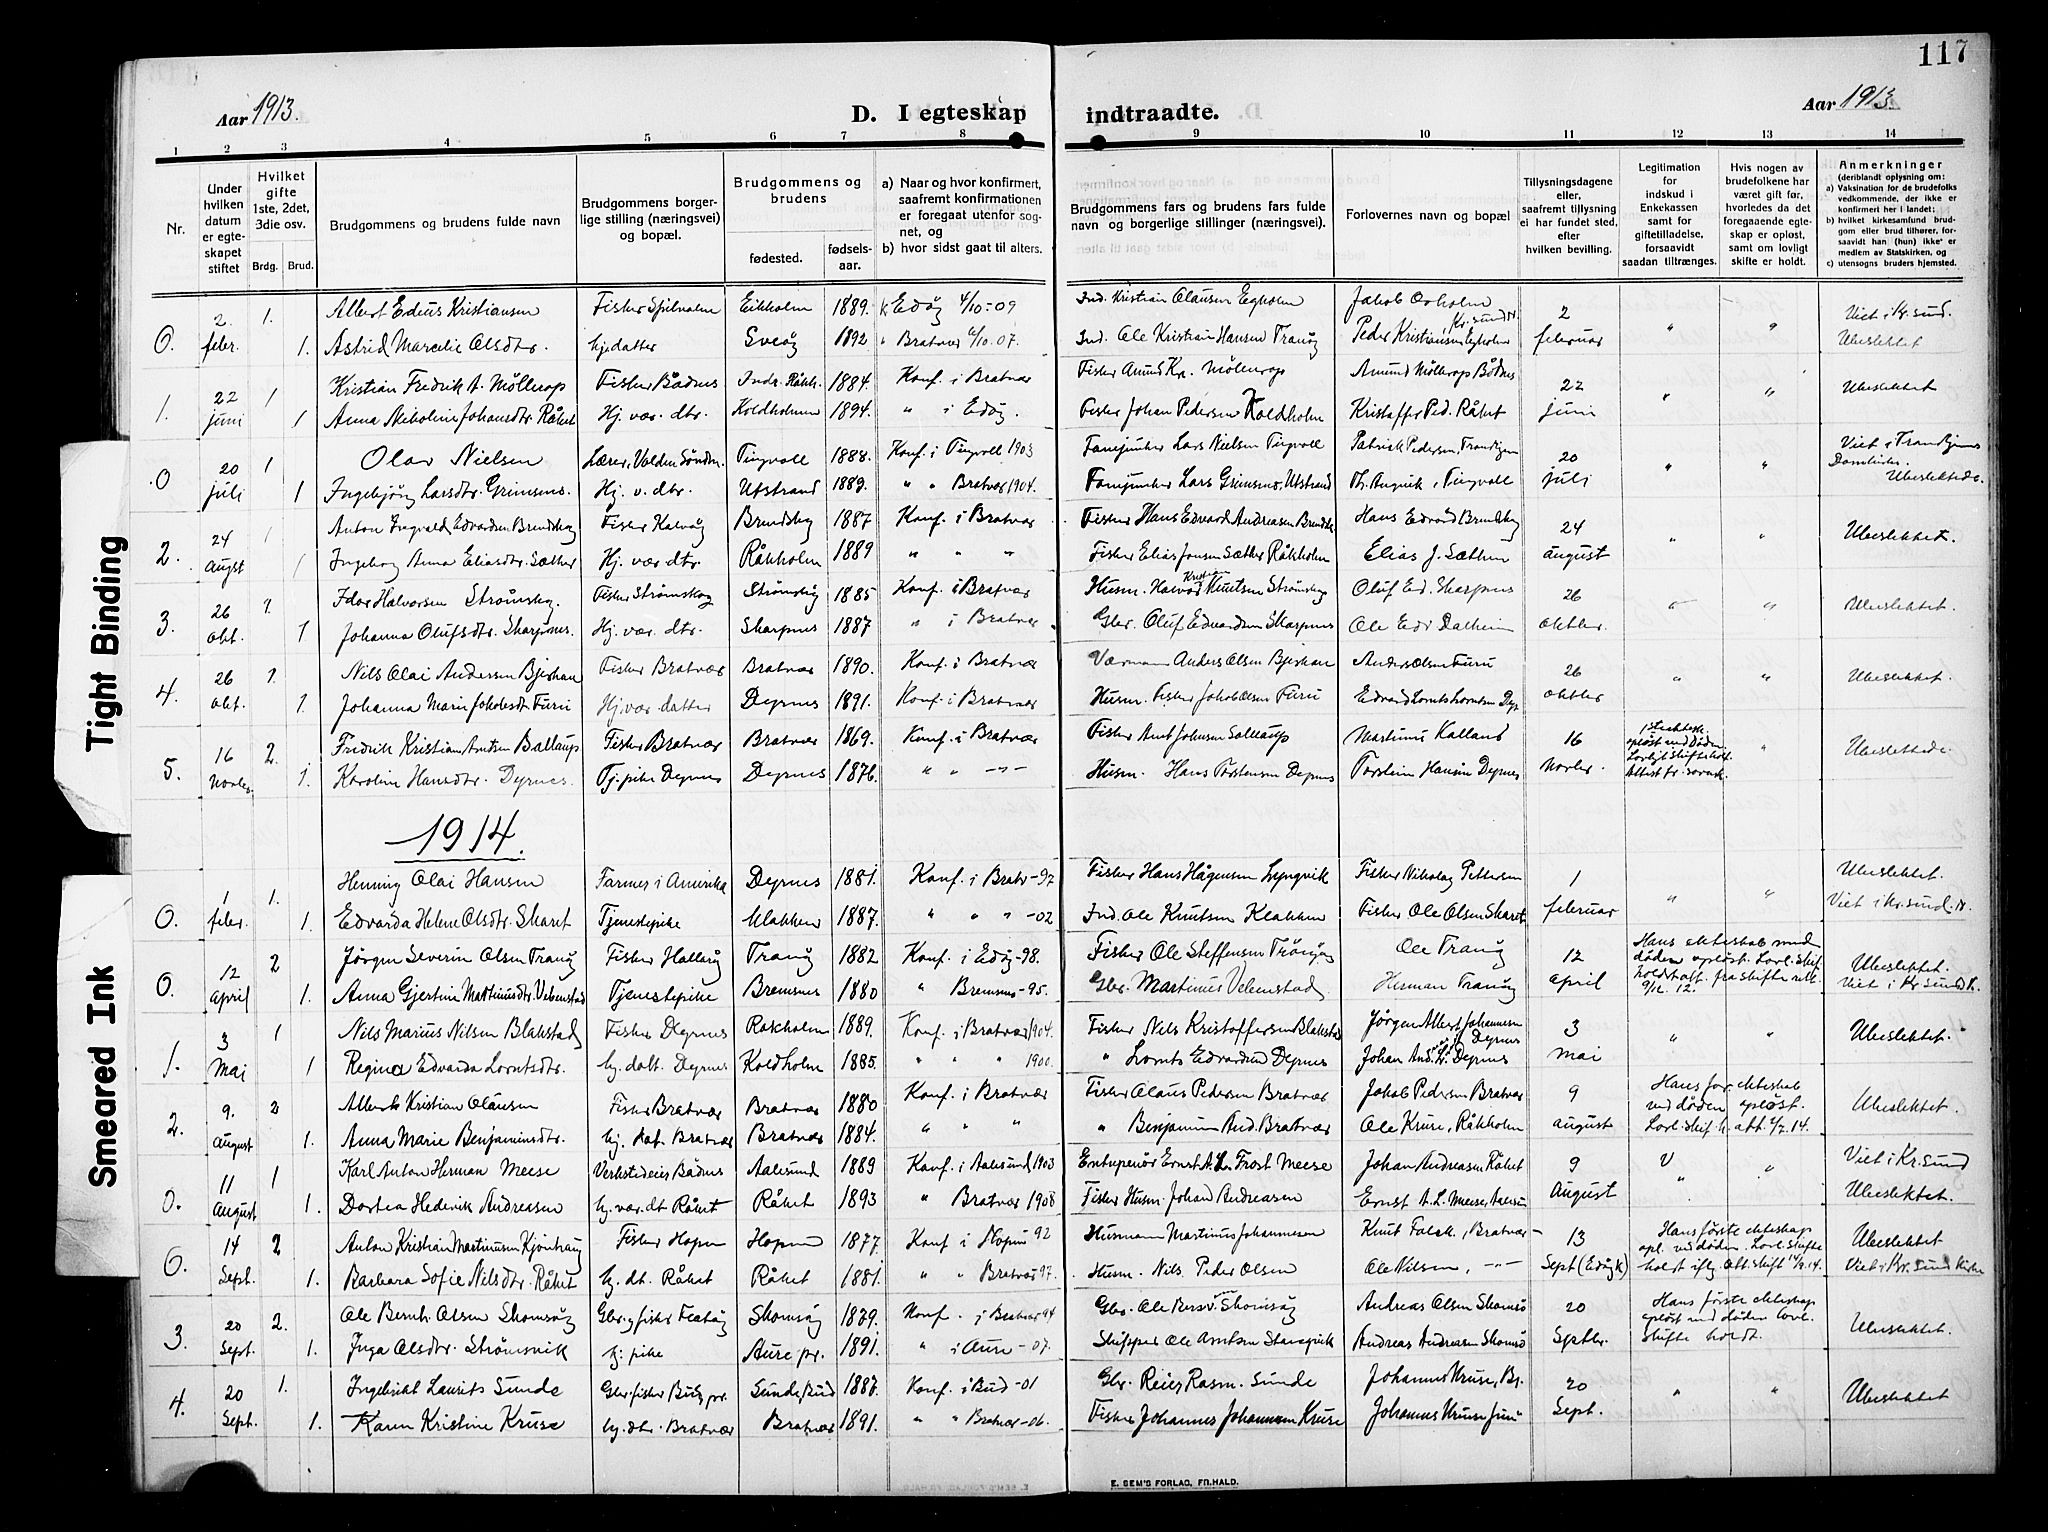 117
Aar 1913.
D. I egteskap indtraadte.
Aar 1913.
1 2 3 4 5 6 7 8 9 10 11 12 13 14
Nr.
Under hvilken datum er egteskapet stiftet
Hvilket gifte 1ste, 2det, 3die osv.
Brdg. Brud.
Brudgommens og brudens fulde navn
Brudgommens borgerlige stilling (næringsvei) og bopæl.
Brudgommens og brudens
fødested.
fødselsaar.
a) Naar og hvor konfirmert, saafremt konfirmationen er foregaat utenfor sognet, og
b) hvor sidst gaat til alters.
Brudgommens fars og brudens fars fulde navn og borgerlige stillinger (næringsvei).
Forlovernes navn og bopæl
Tillysningsdagene eller, saafremt tillysning ei har fundet sted, efter hvilken bevilling.
Legitimation for indskud i Enkekassen samt for giftetilladelse, forsaavidt saadan tiltrænges.
Hvis nogen av brudefolkene har været gift før, hvorledes da det foregaaende egteskap er opløst, samt om lovligt skifte er holdt.
Anmerkninger (deriblandt oplysning om:
a) Vaksination for de brudefolks vedkommende, der ikke er konfirmert her i landet;
b) hvilket kirkesamfund brudgom eller brud tilhører, forsaavidt han (hun) ikke er medlem av Statskirken, og
c) utensogns bruders hjemsted.
0. 2. 1. Albert Edeus Kristiansen Fisker Eikholm 1889. Edöy 4/10-09 Ind. Kristian Olausen Egholm Jakob 2 Viet i Kr.sund.
febr. 1. Astrid Marcelie Olsdtr. hj.datter Sveöy 1892 Bratvær 07. Ind. Ole Kristian Hansen Tranöy Peder Kristiansen Egholm februar " " Ubeslektet
1. 22 1 Kristian Fredrik A. Möllerop Fisker Bådnes Indr. Råkh. 1884. Konf. i Bratvær Fisker Amund Kr. Möllerop Amund Möllerop Bådnes 22 Ubeslektet
juni 1 Anna Nikoline Johansdtr Råket Hj. vær. dtr. Koldholmen 1894. " i Edöy. Fisker Johan Pedersen Koldholm Kristoffer Ped. Råket juni " "
0 20 1 Olav Nielsen Lærer, Tingvoll 1888. Konf. i Tingvoll 1903 Lars Nielsen Tingvoll Patrick Pedersen, Trondhjem 20 Viet i Trondhjems Domkirke.
juli 1 Ingebjörg Larsdtr. Grimsmo. Hj. v. dtr. Utstrand 1889. " " Bratvær 1904. Lars Grimsmo, Utstrand Tingvoll juli " " Ubeslektede.
2. 24 1 Anton Ingvald Edvardsen Brendskog Fisker Kalvöy Brendskog 1887 Konf. i Bratvær Fisker Hans Edvard Andreasen Brendsk. Hans Edvard Brendskog 24 Ubeslektet.
augst 1 Ingeborg Anna Eliasdtr. Sæther Hj. vær dtr. Råkholm 1889 " " " Fisker Elias Jonsen Sæther Råkholm Elias J. Sæther august " "
3. 26 1. Idar Halvorsen Strömskag. Fisker Strömskag 1885 Konf. i Bratvær Husm. Halvor Kristian Knutsen Strömskag Oluf Ed. Skarpnes 26 Ubeslektet.
okt. 1 Johanna Olufsdtr. Skarpnes. Hj. vær. dtr. Skarpnes 1887 " i Bratvær Gbr. Oluf Edvardsen Skarpnes Ole Edv Dalheim oktbr. " "
4. 26 1. Nils Olai Andersen Bjerkan Fisker Bratvær Bratvær 1890. Konf. i Bratvær Anders Olsen Bjerkan Anders Olsen Furu 26 Ubeslektet.
okt. 1. Johanna Marie Jakobsdtr Furu Hj. vær datter Dyrnes 1891. Konf. i Bratvær Husm. Fisker Jakob Olsen Furu Edvard Lornts Dyr. oktbr " "
5. 16 2. Fredrik Kristian Arntsen Ballaup Fisker Bratvær Bratvær 1869. Konf. i Bratvær Fisker Arnt Johnsen Martinus Kalland 16 opløst ved døden Lovligt skifte Ubeslektede
Novbr. 1. Karoline Hansdtr. Dyrnes. Tj. pike Dyrnes Dyrnes 1876. " " — Husm. Hans Torstensen Dyrnes Torstein Hansen Dyrnes Novbr. Attest fr.
1914.
0. 1 1. Henning Olai Hansen Farmer i Amerika Dyrnes 1881. Konf. i Bratv -97 Fisker Hans Hågensen Lyngvik Fisker Nikolay Pettersen 1 Ubeslektet.
febr. 1. Edvarda Helene Olsdtr. Skaret Tjenestepike Klakken 1887. " " " -02 Ind. Ole Knutsen Klakken Fisker Ole Olsen Skaret februar " " Viet i Kr.sund
0. 12 2 Jörgen Severin Olsen Tranöy Fisker Hallaröy Tranöy 1882 Konf. i Edöy -98. Fisker Ole Steffensen Tranöy Ole Tranöy 12 Hans ekteskab ved døden opløst. Lovl. skif. Ubeslektet.
april 1. Anna Gjertine Martinusdtr Velenstad Tjenestepike Bremsnes 1880 " Bremsnes -95. Gbr. Martinus Velenstad Herman Tranöy april holdt att. fra skifteret 9/12. 12. Viet i Kr.sund K.
1. 3 1 Nils Marius Nilsen Blakstad Fisker Dyrnes Roksholm 1889. Konf. i Bratvær 1904. Fisker Nils Kristoffersen Blakstad Jörgen Albert Johannesen Dyrnes 3 Ubeslektet.
Mai 1 Regine Edvarda Lorntsdtr. hj. datt. Dyrnes Koldholm 1885. " " " 1900. " Lornts Edvardsen Dyrnes Johan And. Dyrnes mai " "
2. 9. 2 Albert Kristian Olausen Fisker Bratvær Bratvær 1880 Konf. i Bratvær Fisker Olaus Pedersen Bratvær Jakob Pedersen Bratvær 9 Hans for. ekteskab ved døden opløst. Ubeslektet.
august 1. Anna Marie Benjaminsdtr. hj. dat. Bratvær Bratvær 1884. " " " " Benjamin And. Bratvær Ole Kruse, Råkholm august Lovl. skif. h. att. 4/7. 14.
0. 11 1 Karl Anton Herman Meese Verkstedeier Bådnes Aalesund 1889 Konf. i Aalesund 1903 Entrepenör Ernst A. L. Frost Meese Johan Andreasen Råket 9 " Viet i Kr.sund
august 1. Dortea Hedevik Andreasen hj. vær. dt Råket Råket 1893 " Bratvær 1908 Fisker Husm. Johan Andreasen Ernst A. L. Meese, Aalesun August " Ubeslektet.
0. 14 2 Anton Kristian Martinusen Kjönhaug Fisker Hopen Hopen 1877. Konf i Hopen 92 Husmann Martinus Johannesen Knut Falsk, Bratvær 13 Hans første ekteskap opl. ved døden. Lovl. skifte Ubeslektet
Sept. 1. Barbara Sofie Nilsdtr. Råket hj. dt. Råket Råket 1881. " " Bratvær 97. Husm. Nils Peder Olsen Ole Nilsen, — Sept (Edöy k) holdt iflg. att. skift 14/9. 14. Viet i Kr.sund Kirke
3. 20 2. Ole Bernh. Olsen Skomsöy Gbr. og fisker Skomsöy 1839. Konf. i Bratvær 94 Gbr. Ole Skomsöy Andreas Olsen Skomsö 20 Hans første ekteskap opløst ved døden lovl. Ubeslektet.
Sept. 1. Inga Olsdtr. Strömsvik hj. pike Aure pr. 1891. " i Aure -07. Skipper Ole Arntsen Andreas Andreasen Skomsö Septbr. skifte holdt.
4. 20 1. Ingebrikt Laurits Sunde Gbr. fisker Bud pr. Sunde, Bud 1887. Konf. i Bud -01 Gbr. Reier Rasm. Sunde Johannes Kruse, Br. 20 Ubeslektet
Sept. 1. Karen Kristine Kruse hj. dtr. Bratvær Bratvær 1891. " " Bratvær -06. Fisker Johannes Johannesen Kruse Johannes Kruse jun Sept. " "
E. SEM'S FORLAG, FR.HALD.
Tight Binding
Smeared Ink